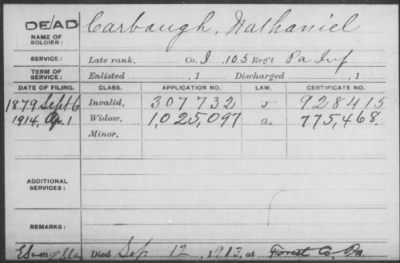 DEAD
NAME OF SOLDIER:
Carbaugh, Nathaniel
SERVICE:
Late rank, Co. I 105 Reg't Pa Inf
TERM OF SERVICE:
Enlisted , 1 Discharged , 1
DATE OF FILING. CLASS. APPLICATION NO. LAW. CERTIFICATE NO.
1879 Sept 6 Invalid, 307732 928415
1914, Ap. 1 Widow, 1,025,097 a. 775,468.
Minor,
ADDITIONAL SERVICES:
REMARKS:
Died Sep 12, 1913, at Forest Co Pa